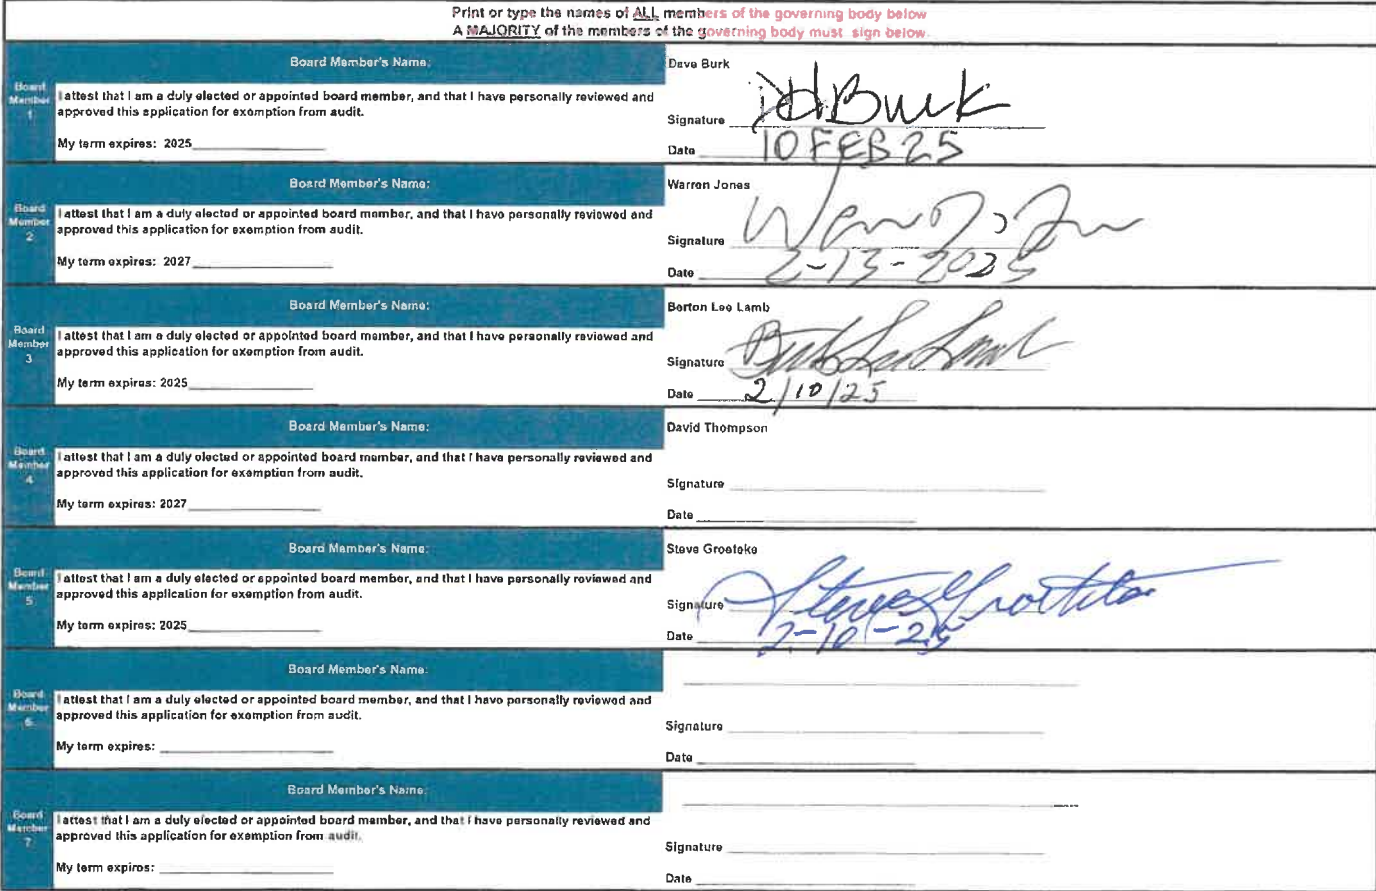 Print or type the names of ALL members of the governing body below
A MAJORITY of the members of the governing body must sign below.
Board Member's Name:
Dave Burk
Board Member 1
I attest that I am a duly elected or appointed board member, and that I have personally reviewed and
approved this application for exemption from audit.
Signature Burk
My term expires: 2025
Date 10 FEB 25
Board Member's Name:
Warren Jones
Board Member 2
I attest that I am a duly elected or appointed board member, and that I have personally reviewed and
approved this application for exemption from audit.
Signature
My term expires: 2027
Date 2-13-2025
Board Member's Name:
Berton Lee Lamb
Board Member 3
I attest that I am a duly elected or appointed board member, and that I have personally reviewed and
approved this application for exemption from audit.
Signature Lee Lamb
My term expires: 2025
Date 2/10/25
Board Member's Name:
David Thompson
Board Member 4
I attest that I am a duly elected or appointed board member, and that I have personally reviewed and
approved this application for exemption from audit.
Signature
My term expires: 2027
Date
Board Member's Name:
Steve Groeteke
Board Member 5
I attest that I am a duly elected or appointed board member, and that I have personally reviewed and
approved this application for exemption from audit.
Signature Steve
My term expires: 2025
Date 2-10-25
Board Member's Name:
Board Member 6
I attest that I am a duly elected or appointed board member, and that I have personally reviewed and
approved this application for exemption from audit.
Signature
My term expires:
Date
Board Member's Name:
Board Member 7
I attest that I am a duly elected or appointed board member, and that I have personally reviewed and
approved this application for exemption from audit.
Signature
My term expires:
Date